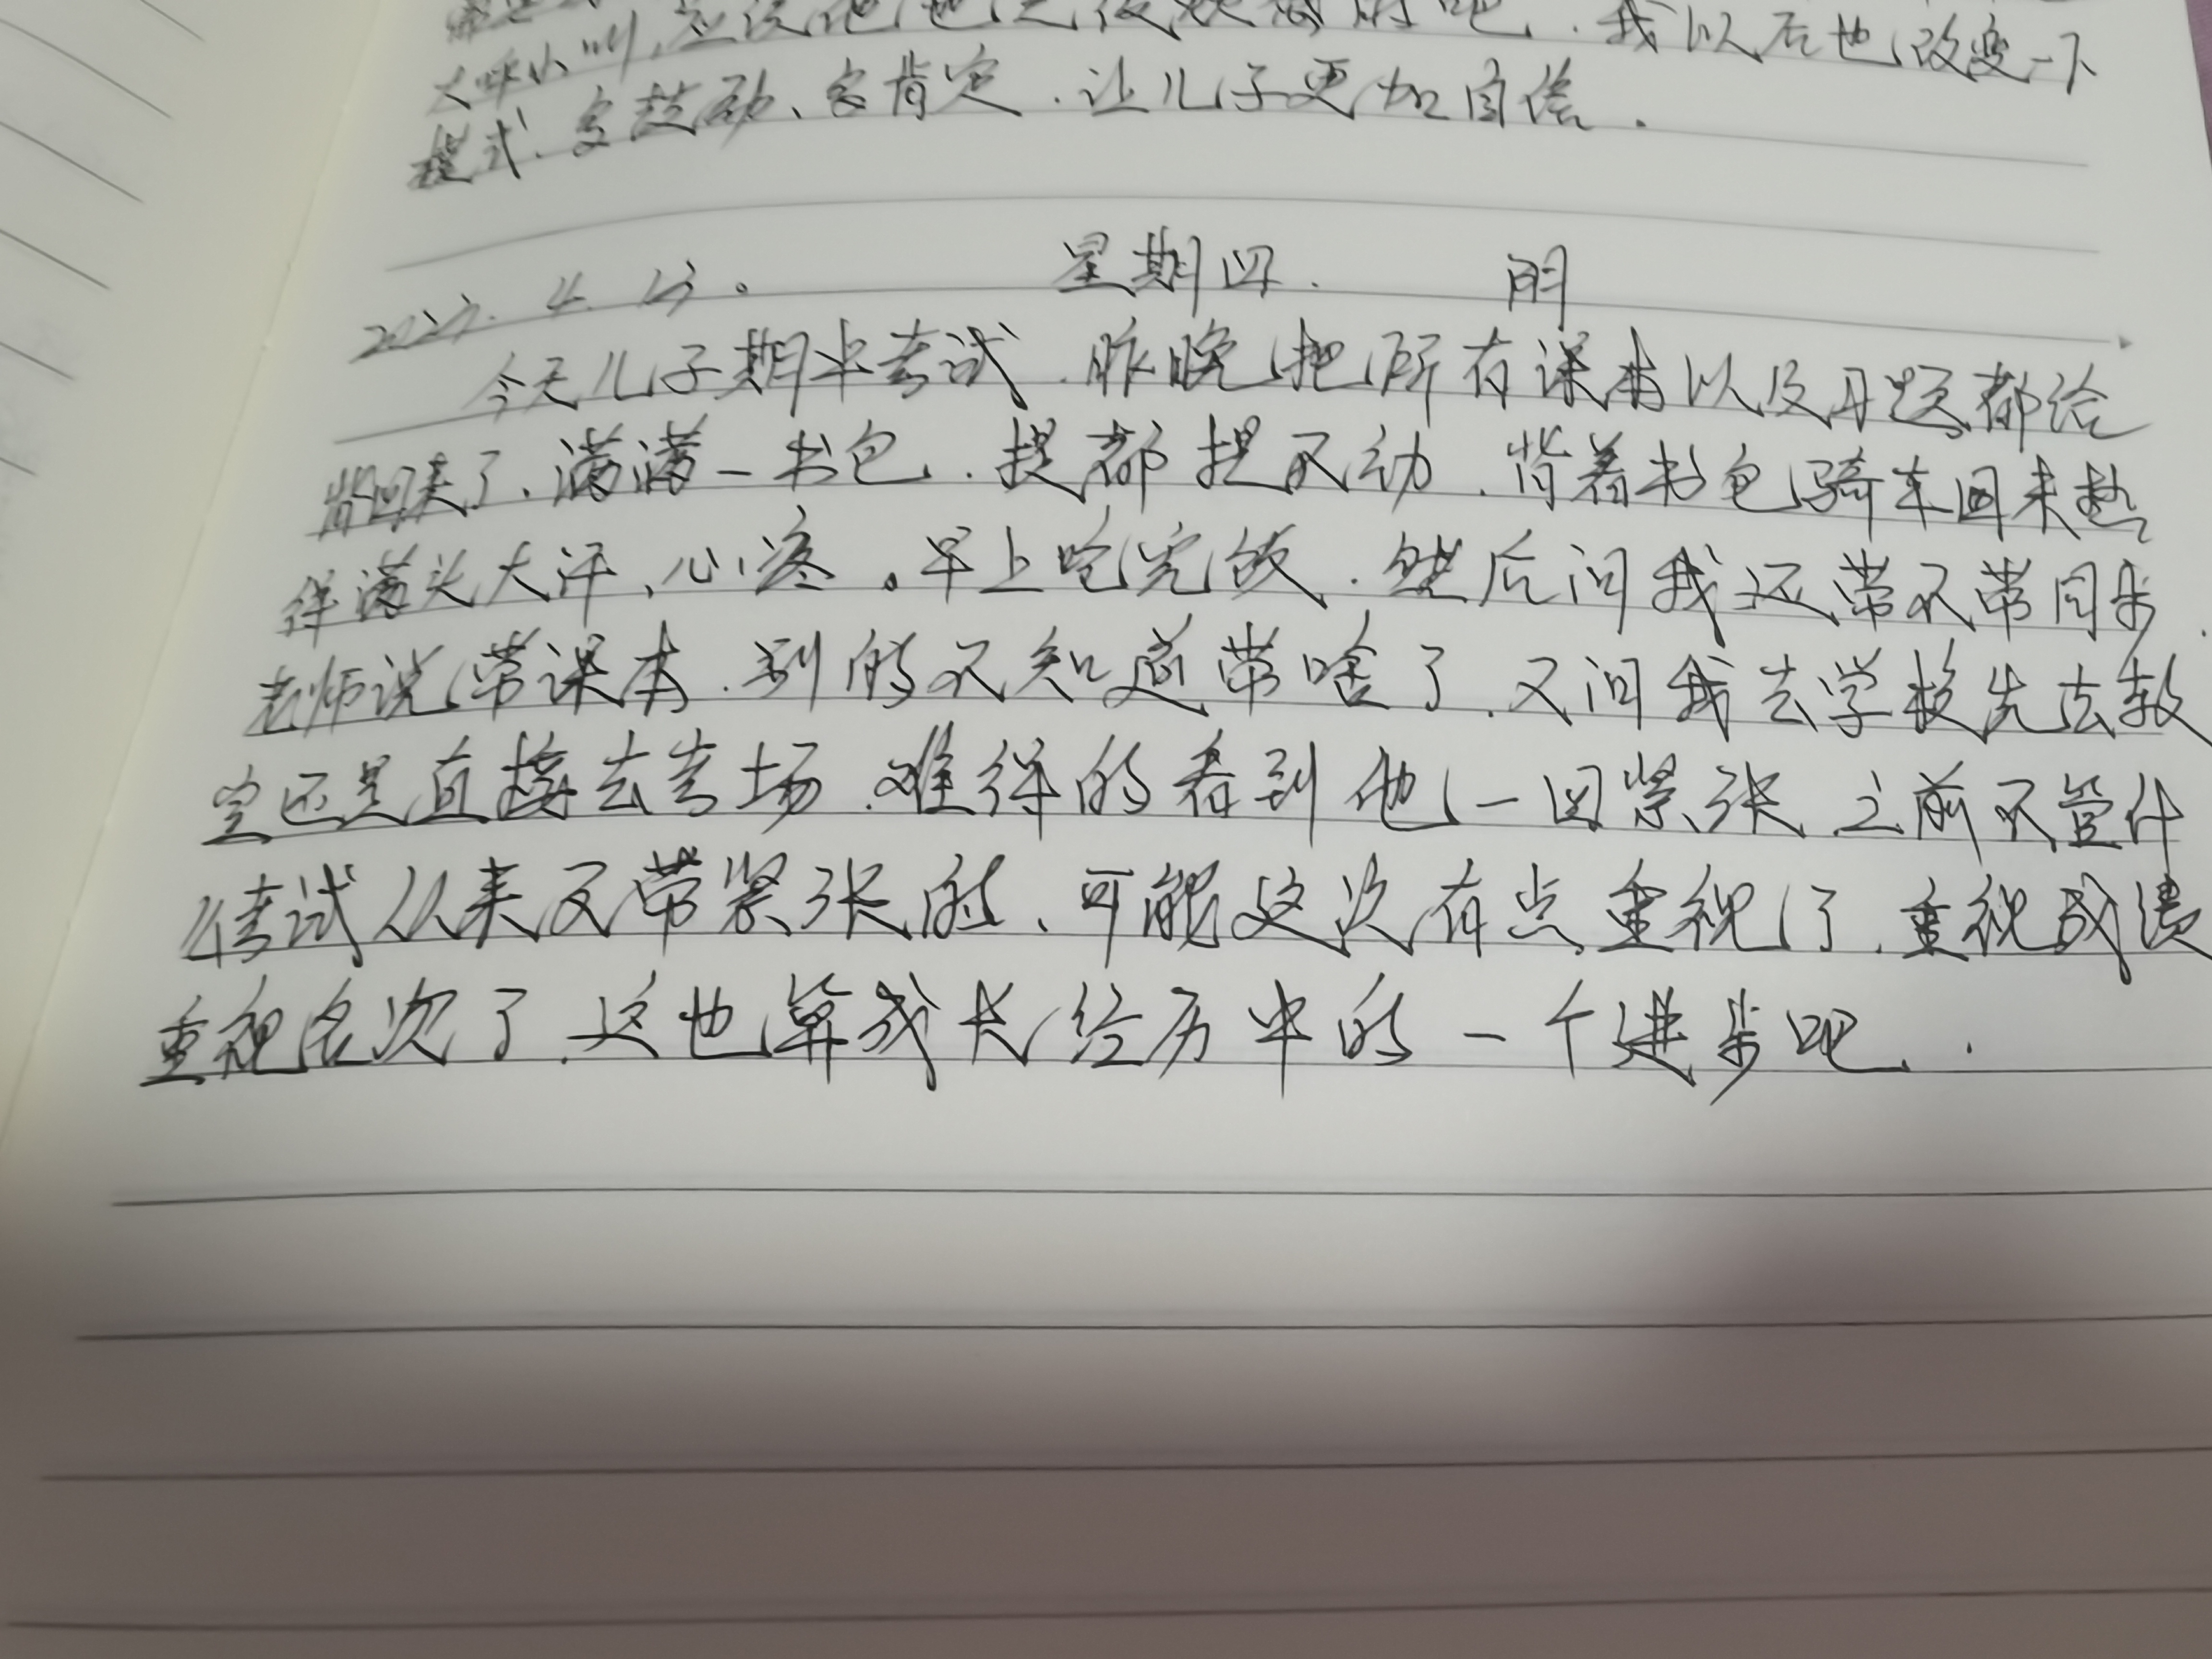 大呼小叫,应该他也没 吧.我以后也改变一下
模式.多鼓励、多肯定.让儿子更加自信.
4. 星期四. 阴
今天儿子期中考试.昨晚把所有课本以及习题都给
背回来了、满满一书包.提都提不动.背着书包骑车回来热
得满头大汗、心疼。早上吃完饭.然后问我还带不带同步.
老师说带课本.别的不知道带啥了.又问我去学校先去教
室还是直接去考场.难得的看到他一回紧张.之前不管什
么考试从来不带紧张的、可能这次有点重视了.重视成绩
重视名次了.这也算成长经历中的一个进步吧..